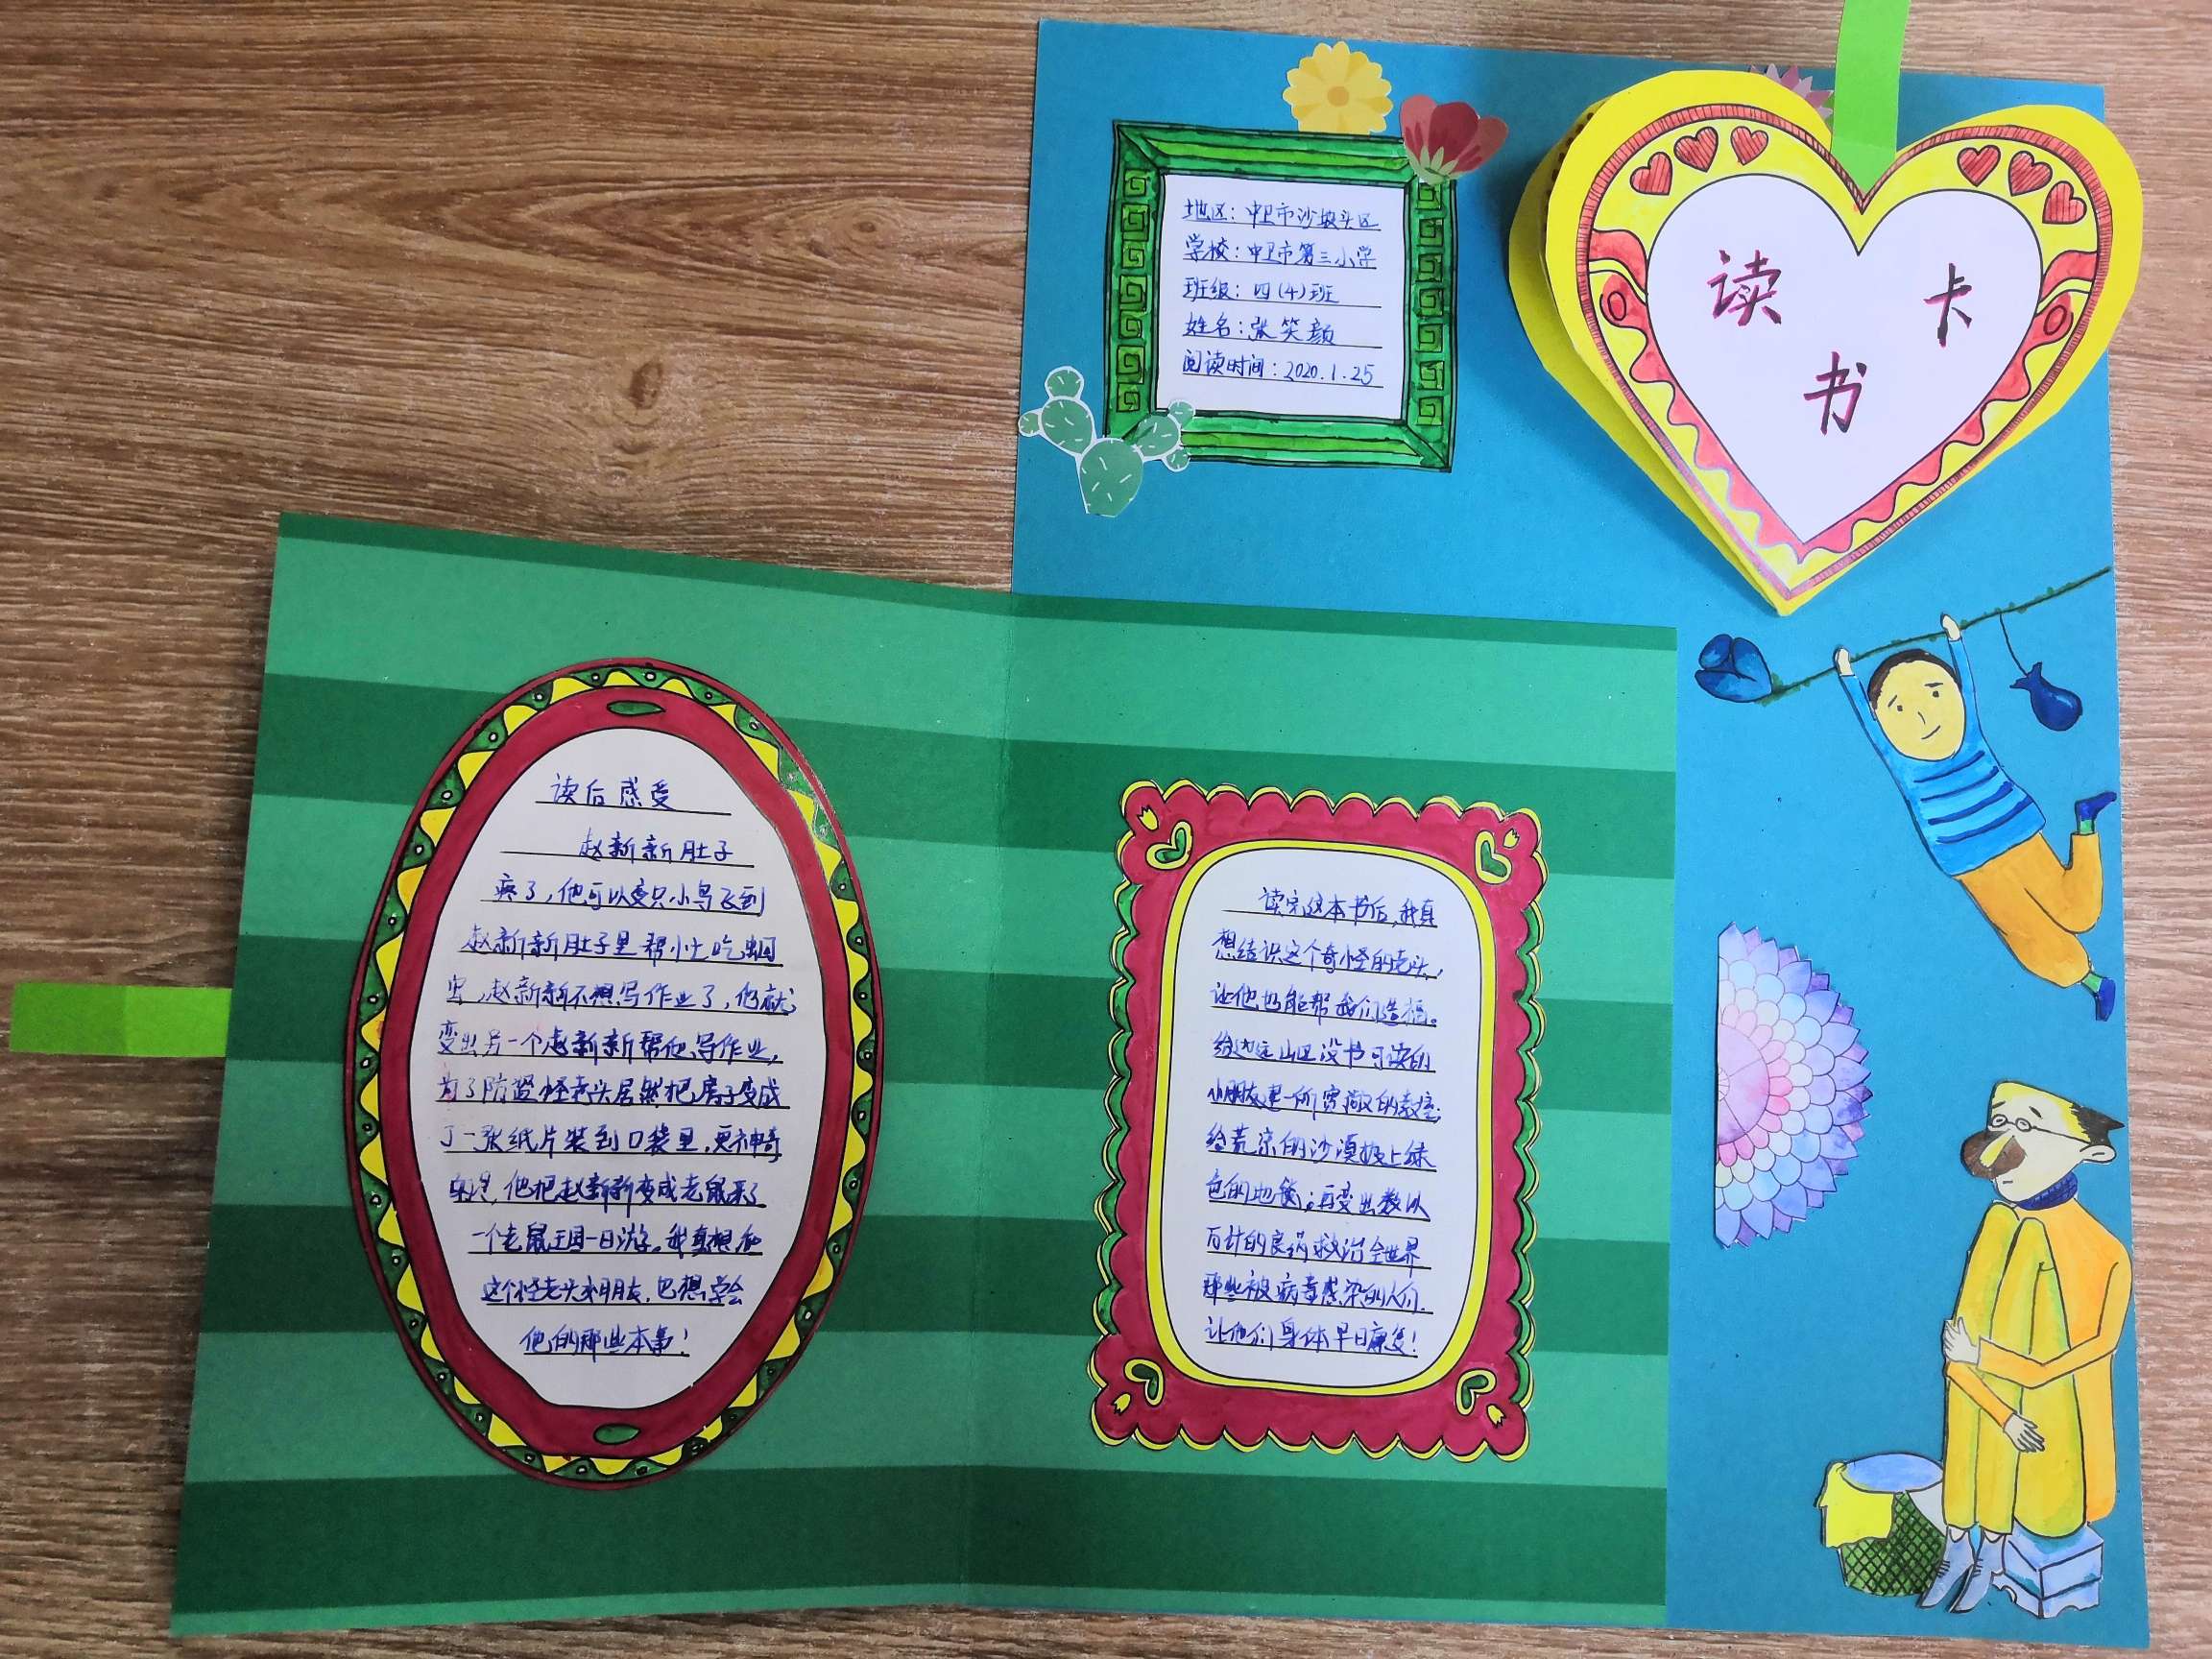 地区：中卫市沙坡头区
学校：中卫市第三小学
班级：四（4）班
姓名：张笑颜
阅读时间：2020.1.25
读书卡
读后感受
赵新新肚子
疼了，他可以变只小鸟飞到
赵新新肚子里帮忙吃蛔
虫，赵新新不想写作业了，他就
变出另一个赵新新帮他写作业，
为了防盗怪老头居然把房子变成
了一张纸片装到口袋里，更神奇
的是，他把赵新新变成老鼠来了
一个老鼠王国一日游。我真想和
这个怪老头利朋友，也想学会
他的那些本事！
读完这本书后，我真
想结识这个奇怪的老头，
让他也能帮我们造福。
给边远山区没书可读的
小朋友建一所宽敞的教室；
给荒凉的沙漠披上绿
色的地毯；再变出数以
万计的良药救治全世界
那些被病毒感染的人们，
让他们身体早日康复！